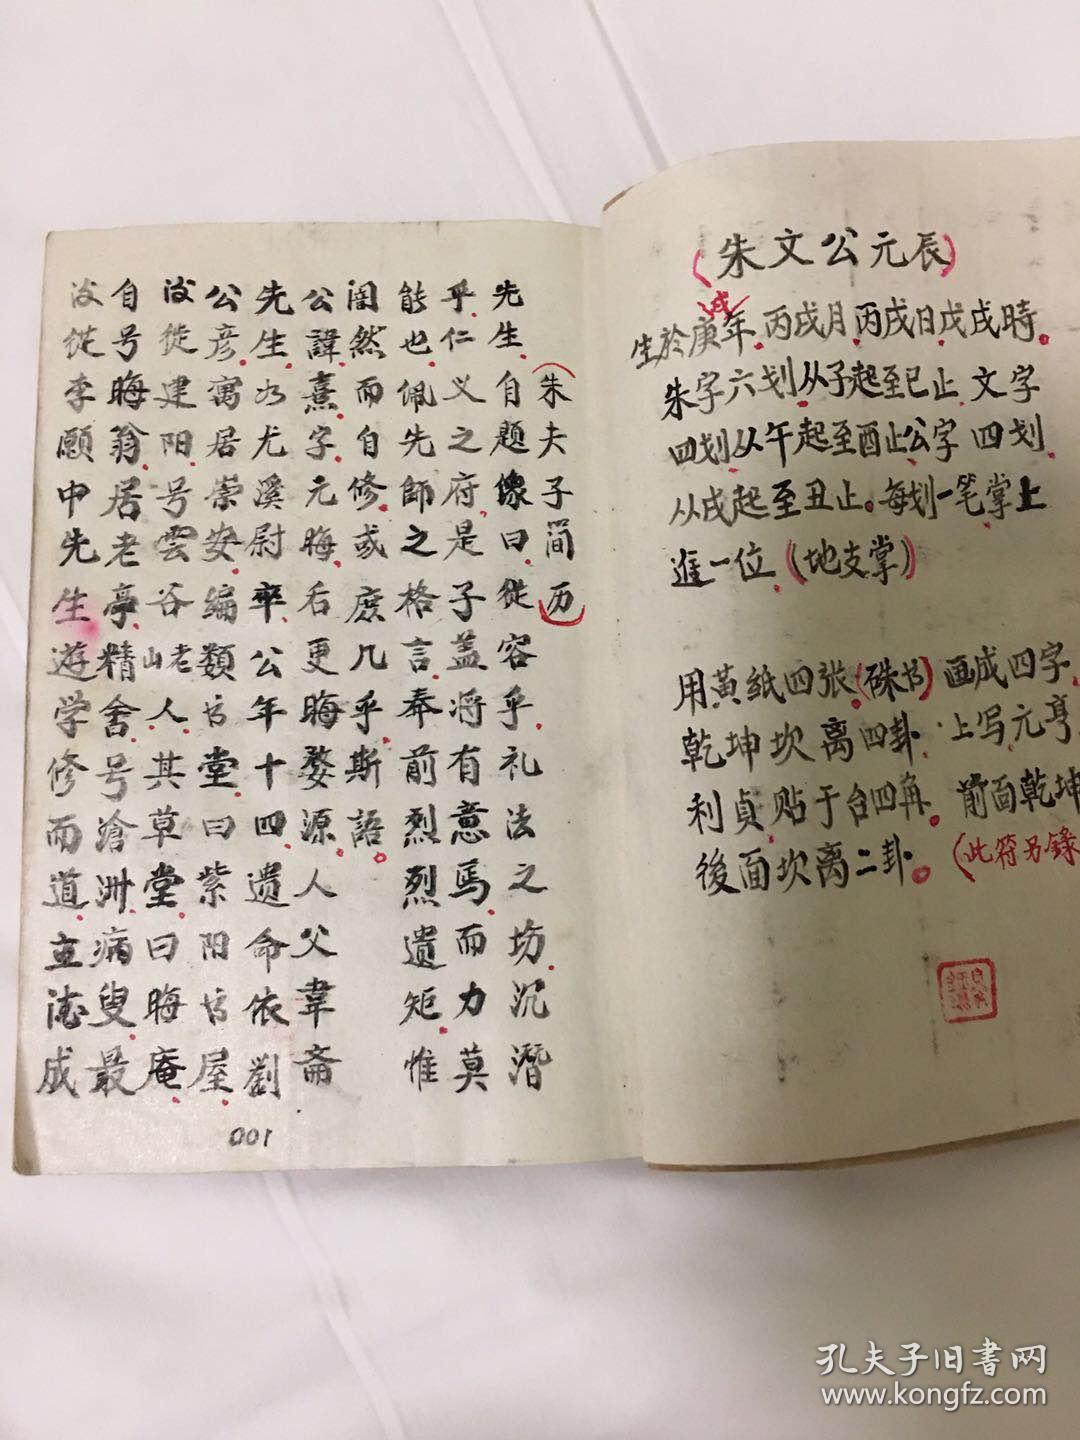 (朱文公元辰)
生於庚戌年.丙戌月.丙戌日.戊戌時.
朱字六划.从子起至巳止.文字
四划.从午起至酉止.公字四划.
从戌起至丑止。每划一笔掌上
進一位(地支掌)
用黄纸四张(硃书)画成四字.
乾坤坎离四卦.上写元亨.
利貞.贴于台四角.前面乾坤
後面坎离二卦。(此符另錄
(朱夫子简历)
先生自题像曰.從容乎.礼法之坊.沉潛
乎.仁义之府.是子盖将有意焉.而力莫
能也.佩先師之格言.奉前烈烈遺矩.惟
闇然而自修.或庶几乎.斯語.
公諱熹.字元晦.后更晦.婺源人父韋齋
先生.为尤溪尉.卒.公年十四.遗命依劉
公彦.寓居崇安.编類书堂.曰紫阳书屋.
後徙建阳.号雲谷山老人.其草堂曰晦庵.
自号晦翁.居老亭.精舍.号滄洲病叟.最
後從李愿中先生遊学修而道立德成
001
孔夫子旧书网
www.kongfz.com